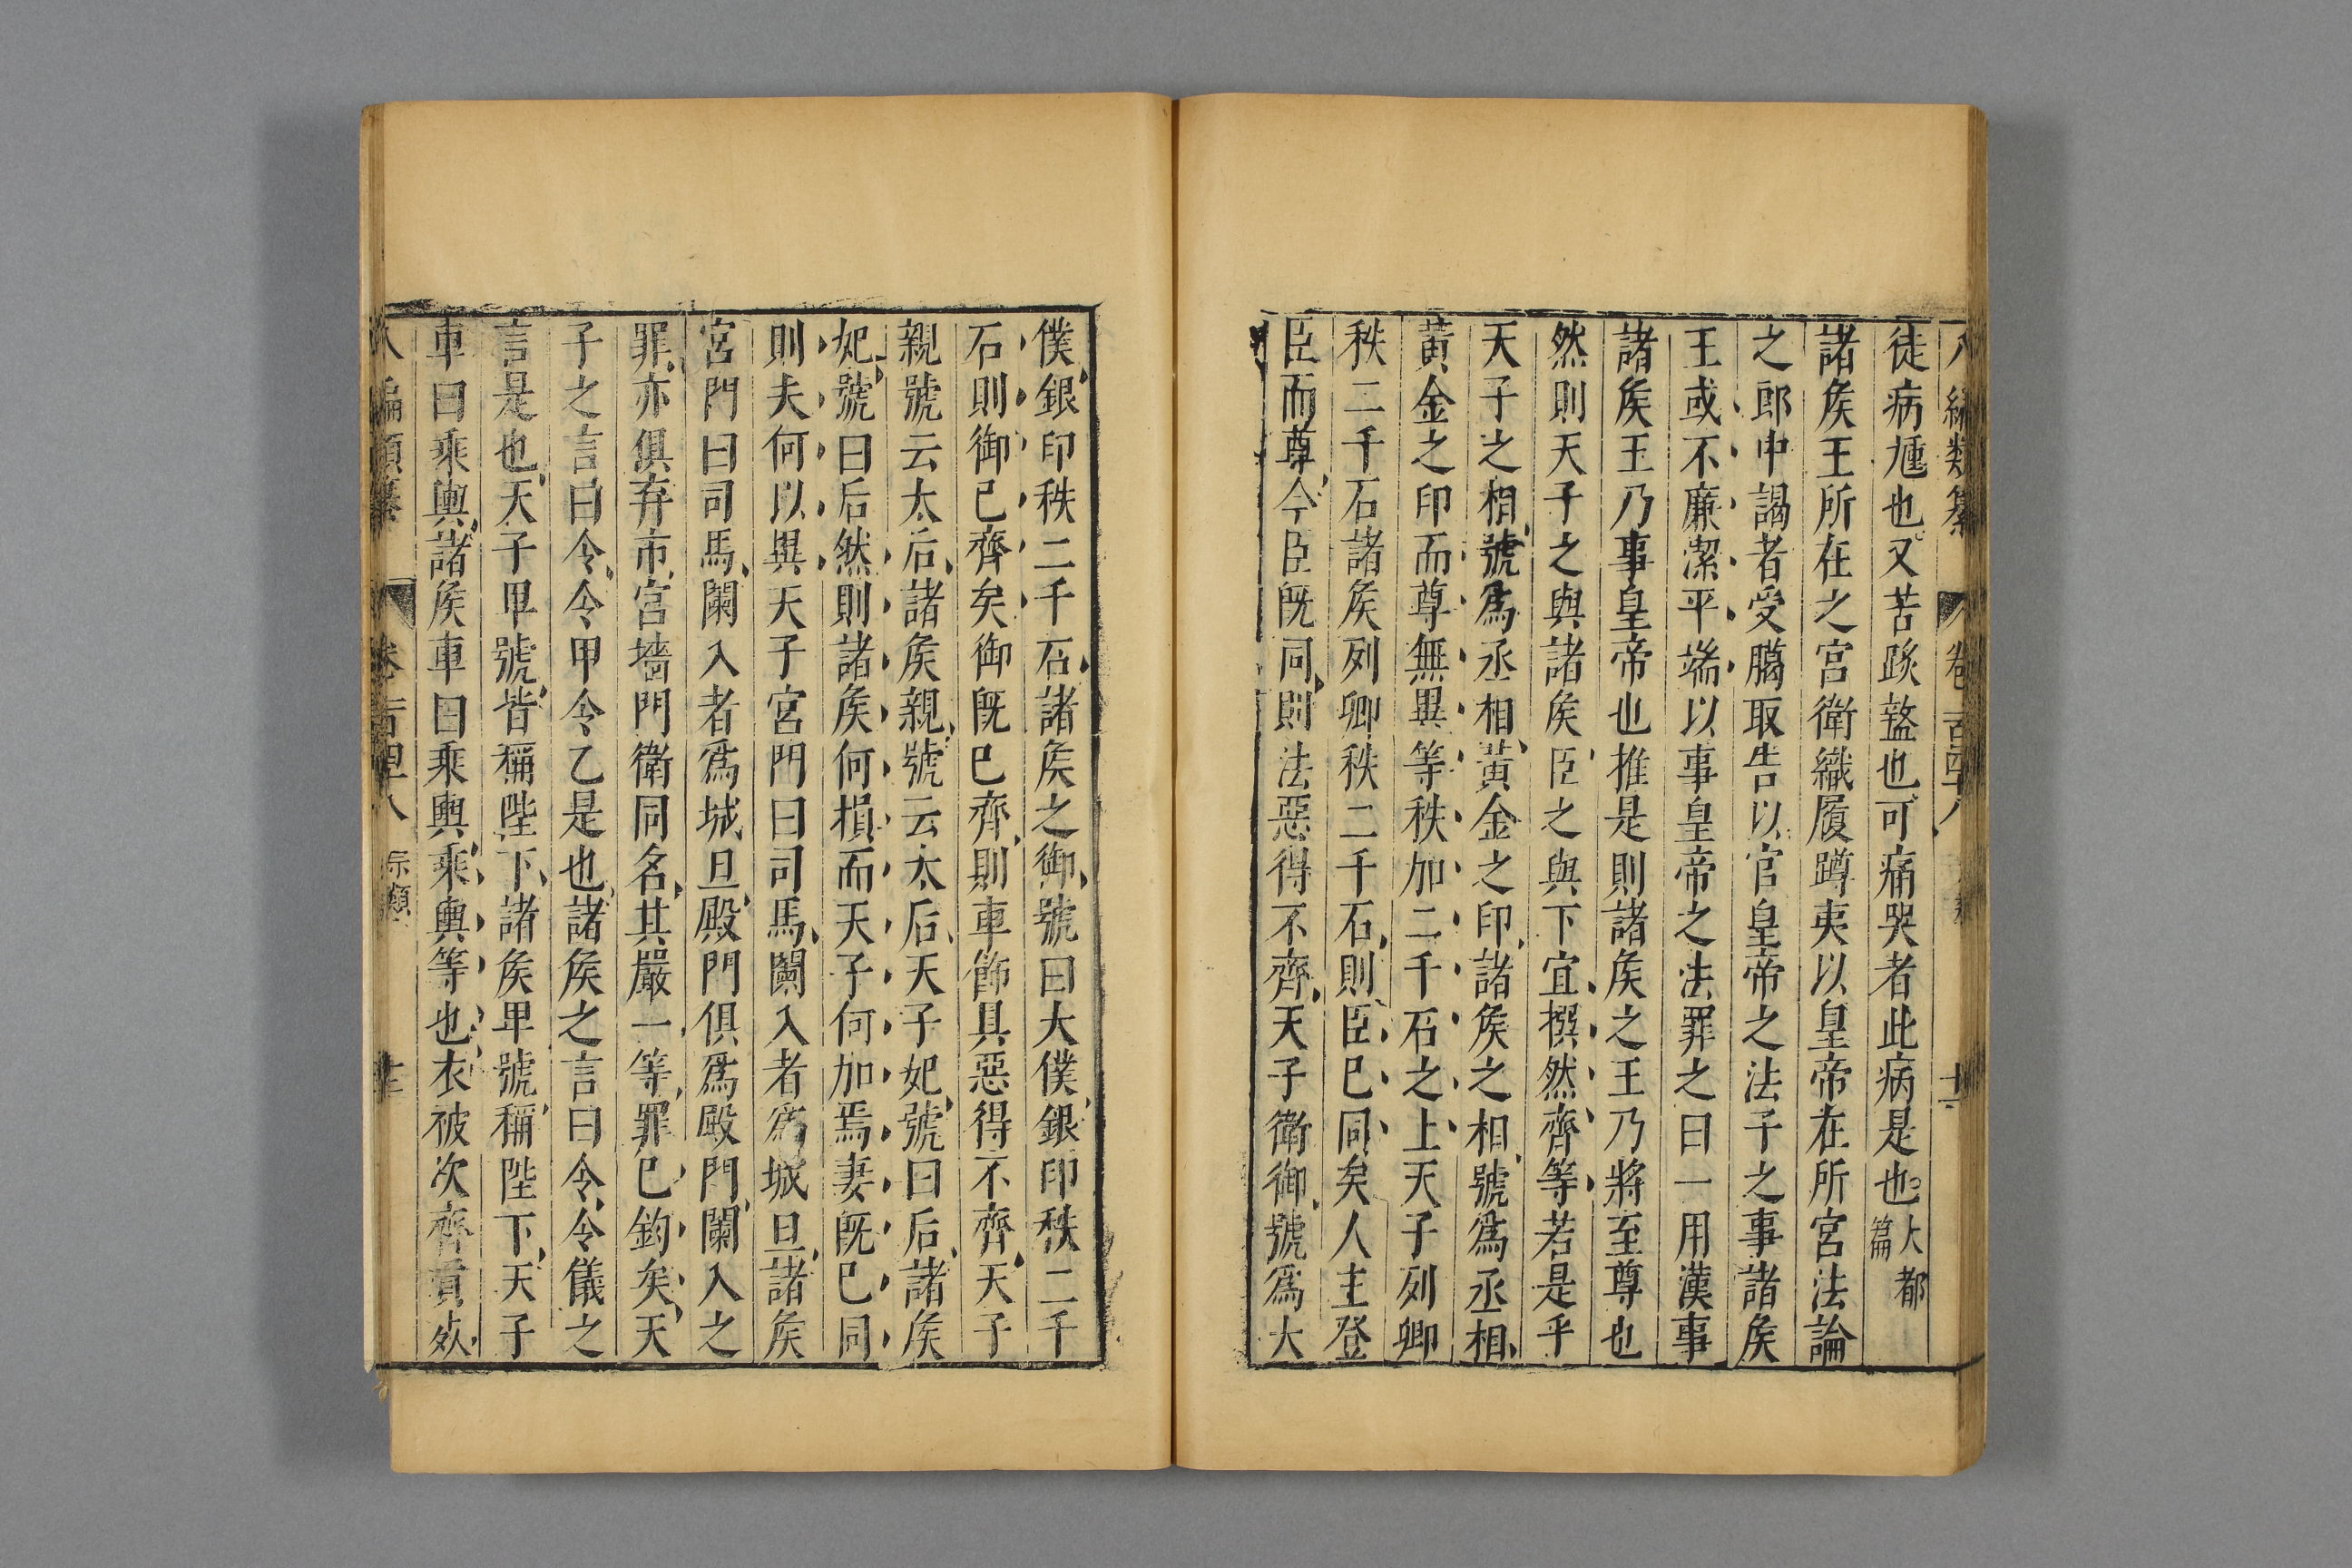 八編類纂 卷一百四十八 十二
徒病瘇也又苦𨂂盭也可痛哭者此病是也大都篇
諸矦王所在之宮衛織履蹲夷以皇帝在所宮法論
之郎中謁者受臈取告以官皇帝之法予之事諸矦
王或不廉潔平端以事皇帝之法罪之曰一用漢事
諸矦王乃事皇帝也推是則諸矦之王乃將至尊也
然則天子之與諸矦臣之與下宜撰然齊等若是乎
天子之相號爲丞相黃金之印諸矦之相號爲丞相
黃金之印而尊無異等秩加二千石之上天子列卿
秩二千石諸矦列卿秩二千石則臣已同矣人主登
臣而尊今臣旣同則法惡得不齊天子衛御號爲大
僕銀印秩二千石諸矦之御號曰大僕銀印秩二千
石則御已齊矣御旣已齊則車飾具惡得不齊天子
親號云太后諸矦親號云太后天子妃號曰后諸矦
妃號曰后然則諸矦何損而天子何加焉妻旣已同
則夫何以異天子宮門曰司馬闌入者爲城旦諸矦
宮門曰司馬闌入者爲城旦殿門俱爲殿門闌入之
罪亦俱弃市宮墻門衛同名其嚴一等罪已鈞矣天
子之言曰令令甲令乙是也諸矦之言曰令令儀之
言是也天子𤰞號皆稱陛下諸矦𤰞號稱陛下天子
車曰乘輿諸矦車曰乘輿乘輿等也衣被次齊貢𣦸
八編類纂 卷一百四十八 宗類 十三